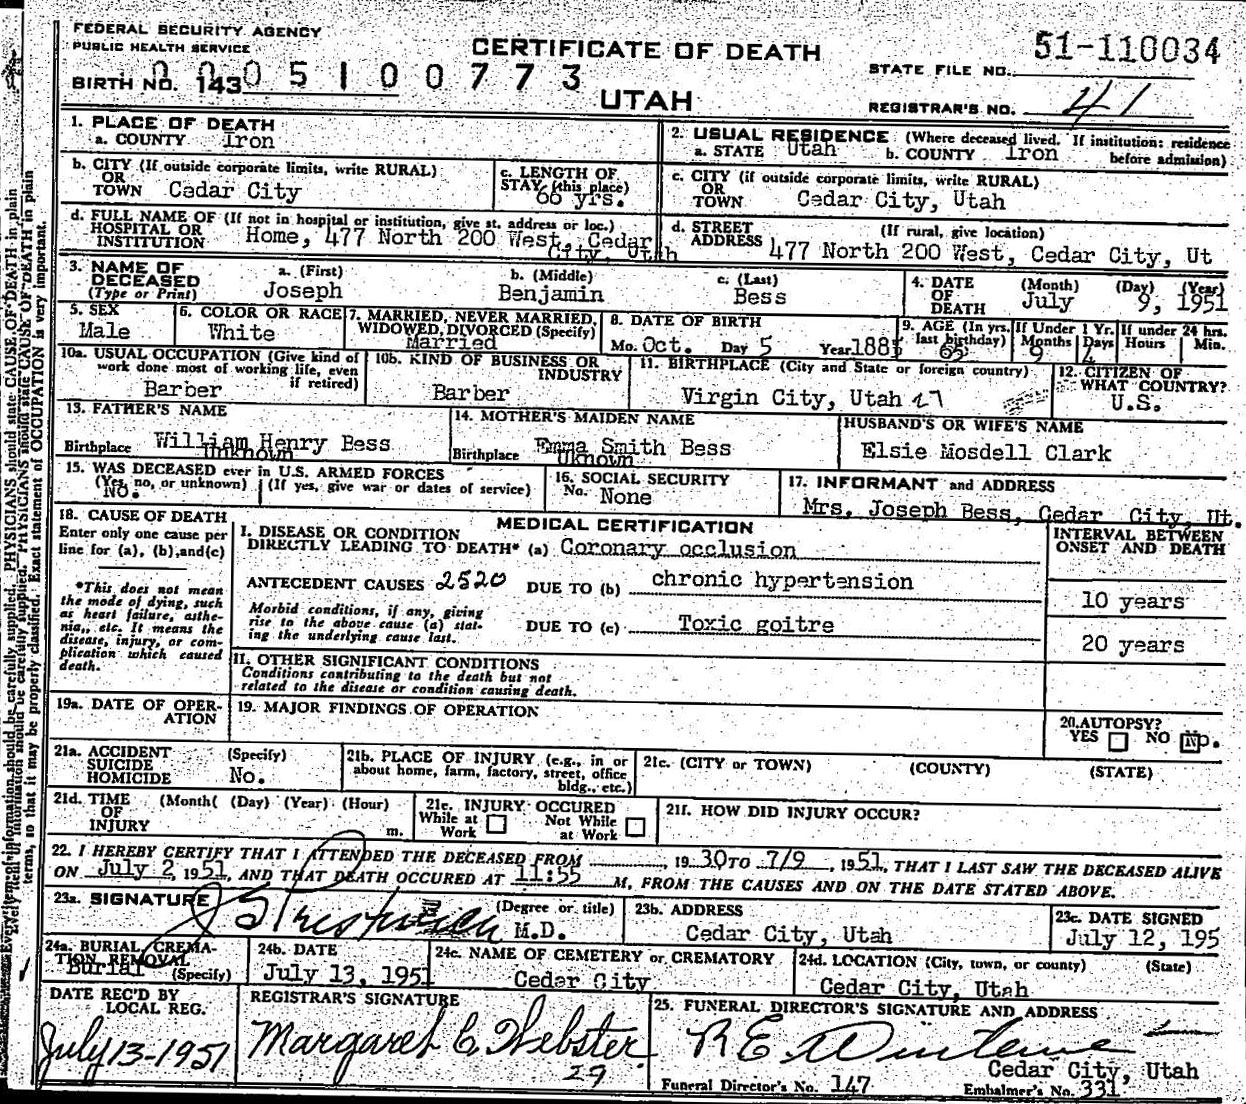 FEDERAL SECURITY AGENCY
PUBLIC HEALTH SERVICE
CERTIFICATE OF DEATH
51-110034
STATE FILE NO.
BIRTH NO. 143 0005100773
UTAH
REGISTRAR'S NO. 41
1. PLACE OF DEATH
a. COUNTY Iron
2. USUAL RESIDENCE (Where deceased lived. If institution: residence before admission)
a. STATE Utah b. COUNTY Iron
b. CITY (If outside corporate limits, write RURAL)
OR
TOWN Cedar City
c. LENGTH OF
STAY (this place)
66 yrs.
c. CITY (if outside corporate limits, write RURAL)
OR
TOWN Cedar City, Utah
d. FULL NAME OF (If not in hospital or institution, give st. address or loc.)
HOSPITAL OR
INSTITUTION Home, 477 North 200 West, Cedar
City, Utah
d. STREET (If rural, give location)
ADDRESS 477 North 200 West, Cedar City, Ut
3. NAME OF
DECEASED
(Type or Print)
a. (First) Joseph
b. (Middle) Benjamin
c. (Last) Bess
4. DATE
OF
DEATH
(Month) (Day) (Year)
July 9, 1951
5. SEX
Male
6. COLOR OR RACE
White
7. MARRIED, NEVER MARRIED,
WIDOWED, DIVORCED (Specify)
Married
8. DATE OF BIRTH
Mo. Oct. Day 5 Year 1885
9. AGE (In yrs.
last birthday)
65
If Under 1 Yr.
Months Days
9 4
If under 24 hrs.
Hours Min.
10a. USUAL OCCUPATION (Give kind of
work done most of working life, even
if retired)
Barber
10b. KIND OF BUSINESS OR
INDUSTRY
Barber
11. BIRTHPLACE (City and State or foreign country)
Virgin City, Utah 27
12. CITIZEN OF
WHAT COUNTRY?
U.S.
13. FATHER'S NAME
William Henry Bess
Birthplace Unknown
14. MOTHER'S MAIDEN NAME
Emma Smith Bess
Birthplace Uknown
HUSBAND'S OR WIFE'S NAME
Elsie Mosdell Clark
15. WAS DECEASED ever in U.S. ARMED FORCES
(Yes, no, or unknown) (If yes, give war or dates of service)
No.
16. SOCIAL SECURITY
No. None
17. INFORMANT and ADDRESS
Mrs. Joseph Bess, Cedar City, Ut.
18. CAUSE OF DEATH
Enter only one cause per
line for (a), (b), and (c)
*This does not mean
the mode of dying, such
as heart failure, asthe-
nia,, etc. It means the
disease, injury, or com-
plication which caused
death.
MEDICAL CERTIFICATION
I. DISEASE OR CONDITION
DIRECTLY LEADING TO DEATH* (a) Coronary occlusion
ANTECEDENT CAUSES 2520 DUE TO (b) chronic hypertension
Morbid conditions, if any, giving
rise to the above cause (a) stat-
ing the underlying cause last.
DUE TO (c) Toxic goitre
INTERVAL BETWEEN
ONSET AND DEATH
10 years
20 years
II. OTHER SIGNIFICANT CONDITIONS
Conditions contributing to the death but not
related to the disease or condition causing death.
19a. DATE OF OPER-
ATION
19. MAJOR FINDINGS OF OPERATION
20. AUTOPSY?
YES NO No.
21a. ACCIDENT
SUICIDE
HOMICIDE
(Specify)
No.
21b. PLACE OF INJURY (e.g., in or
about home, farm, factory, street, office
bldg., etc.)
21c. (CITY or TOWN) (COUNTY) (STATE)
21d. TIME (Month( (Day) (Year) (Hour)
OF
INJURY m.
21e. INJURY OCCURED
While at Not While
Work at Work
21f. HOW DID INJURY OCCUR?
22. I HEREBY CERTIFY THAT I ATTENDED THE DECEASED FROM , 19 30 TO 7/9, 1951, THAT I LAST SAW THE DECEASED ALIVE
ON July 2, 1951, AND THAT DEATH OCCURED AT 11:55 M, FROM THE CAUSES AND ON THE DATE STATED ABOVE.
23a. SIGNATURE (Degree or title)
M.D.
23b. ADDRESS
Cedar City, Utah
23c. DATE SIGNED
July 12, 195
24a. BURIAL, CREMA-
TION, REMOVAL
Burial (Specify)
24b. DATE
July 13, 1951
24c. NAME OF CEMETERY or CREMATORY
Cedar City
24d. LOCATION (City, town, or county) (State)
Cedar City, Utah
DATE REC'D BY
LOCAL REG.
July 13-1951
REGISTRAR'S SIGNATURE
Margaret C. Webster
29
25. FUNERAL DIRECTOR'S SIGNATURE AND ADDRESS
Cedar City, Utah
Funeral Director's No. 147 Embalmer's No. 331